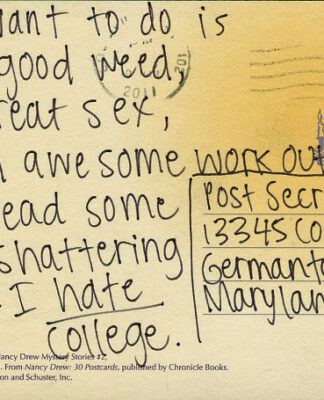 want to do is
good weed,
reat sex,
n awesome work out
ead some
shattering
I hate
college.
2011
Post Secr
13345 Co
Germanto
Marylan
Nancy Drew Mystery Stories #2,
. From Nancy Drew: 30 Postcards, published by Chronicle Books.
on and Schuster, Inc.